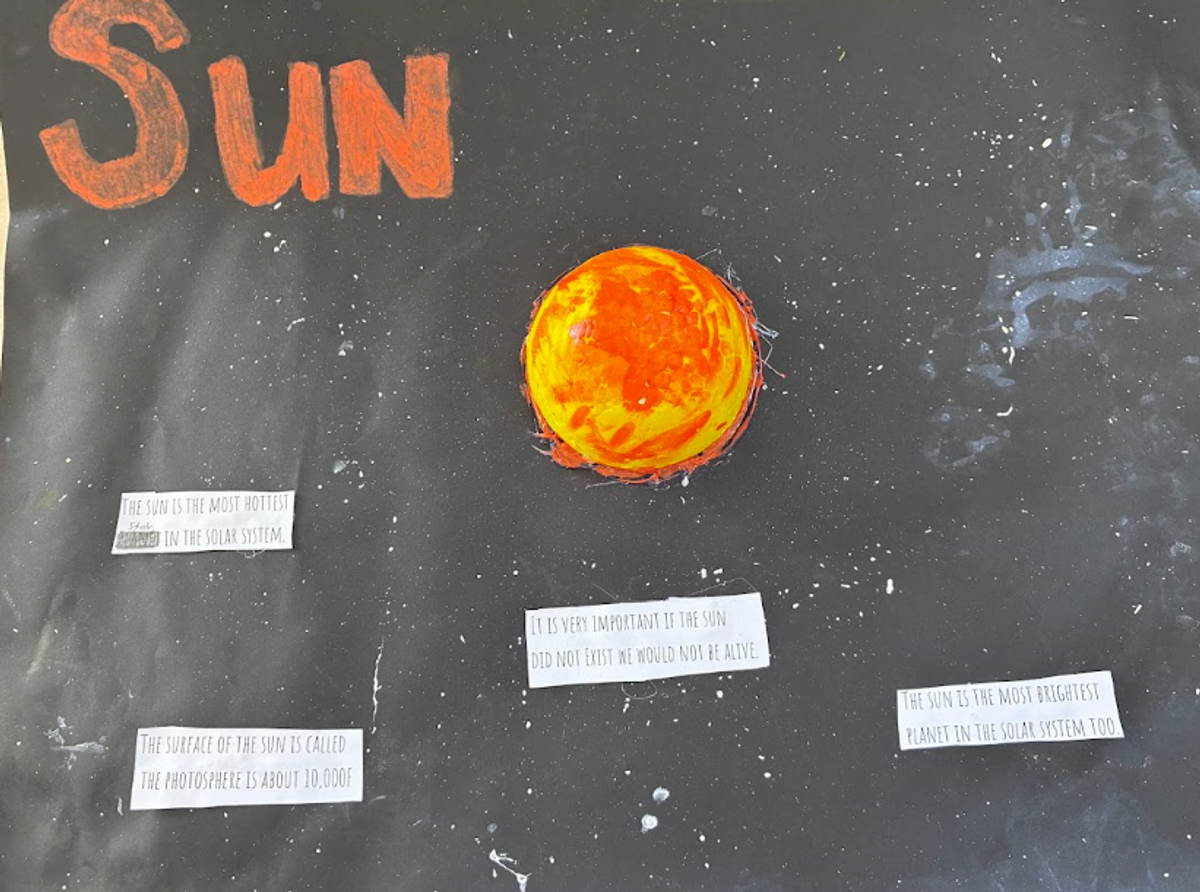 SUN
THE SUN IS THE MOST HOTTEST
Star
IN THE SOLAR SYSTEM.
IT IS VERY IMPORTANT IF THE SUN
DID NOT EXIST WE WOULD NOT BE ALIVE.
THE SUN IS THE MOST BRIGHTEST
PLANET IN THE SOLAR SYSTEM TOO.
THE SURFACE OF THE SUN IS CALLED
THE PHOTOSPHERE IS ABOUT 10,000F